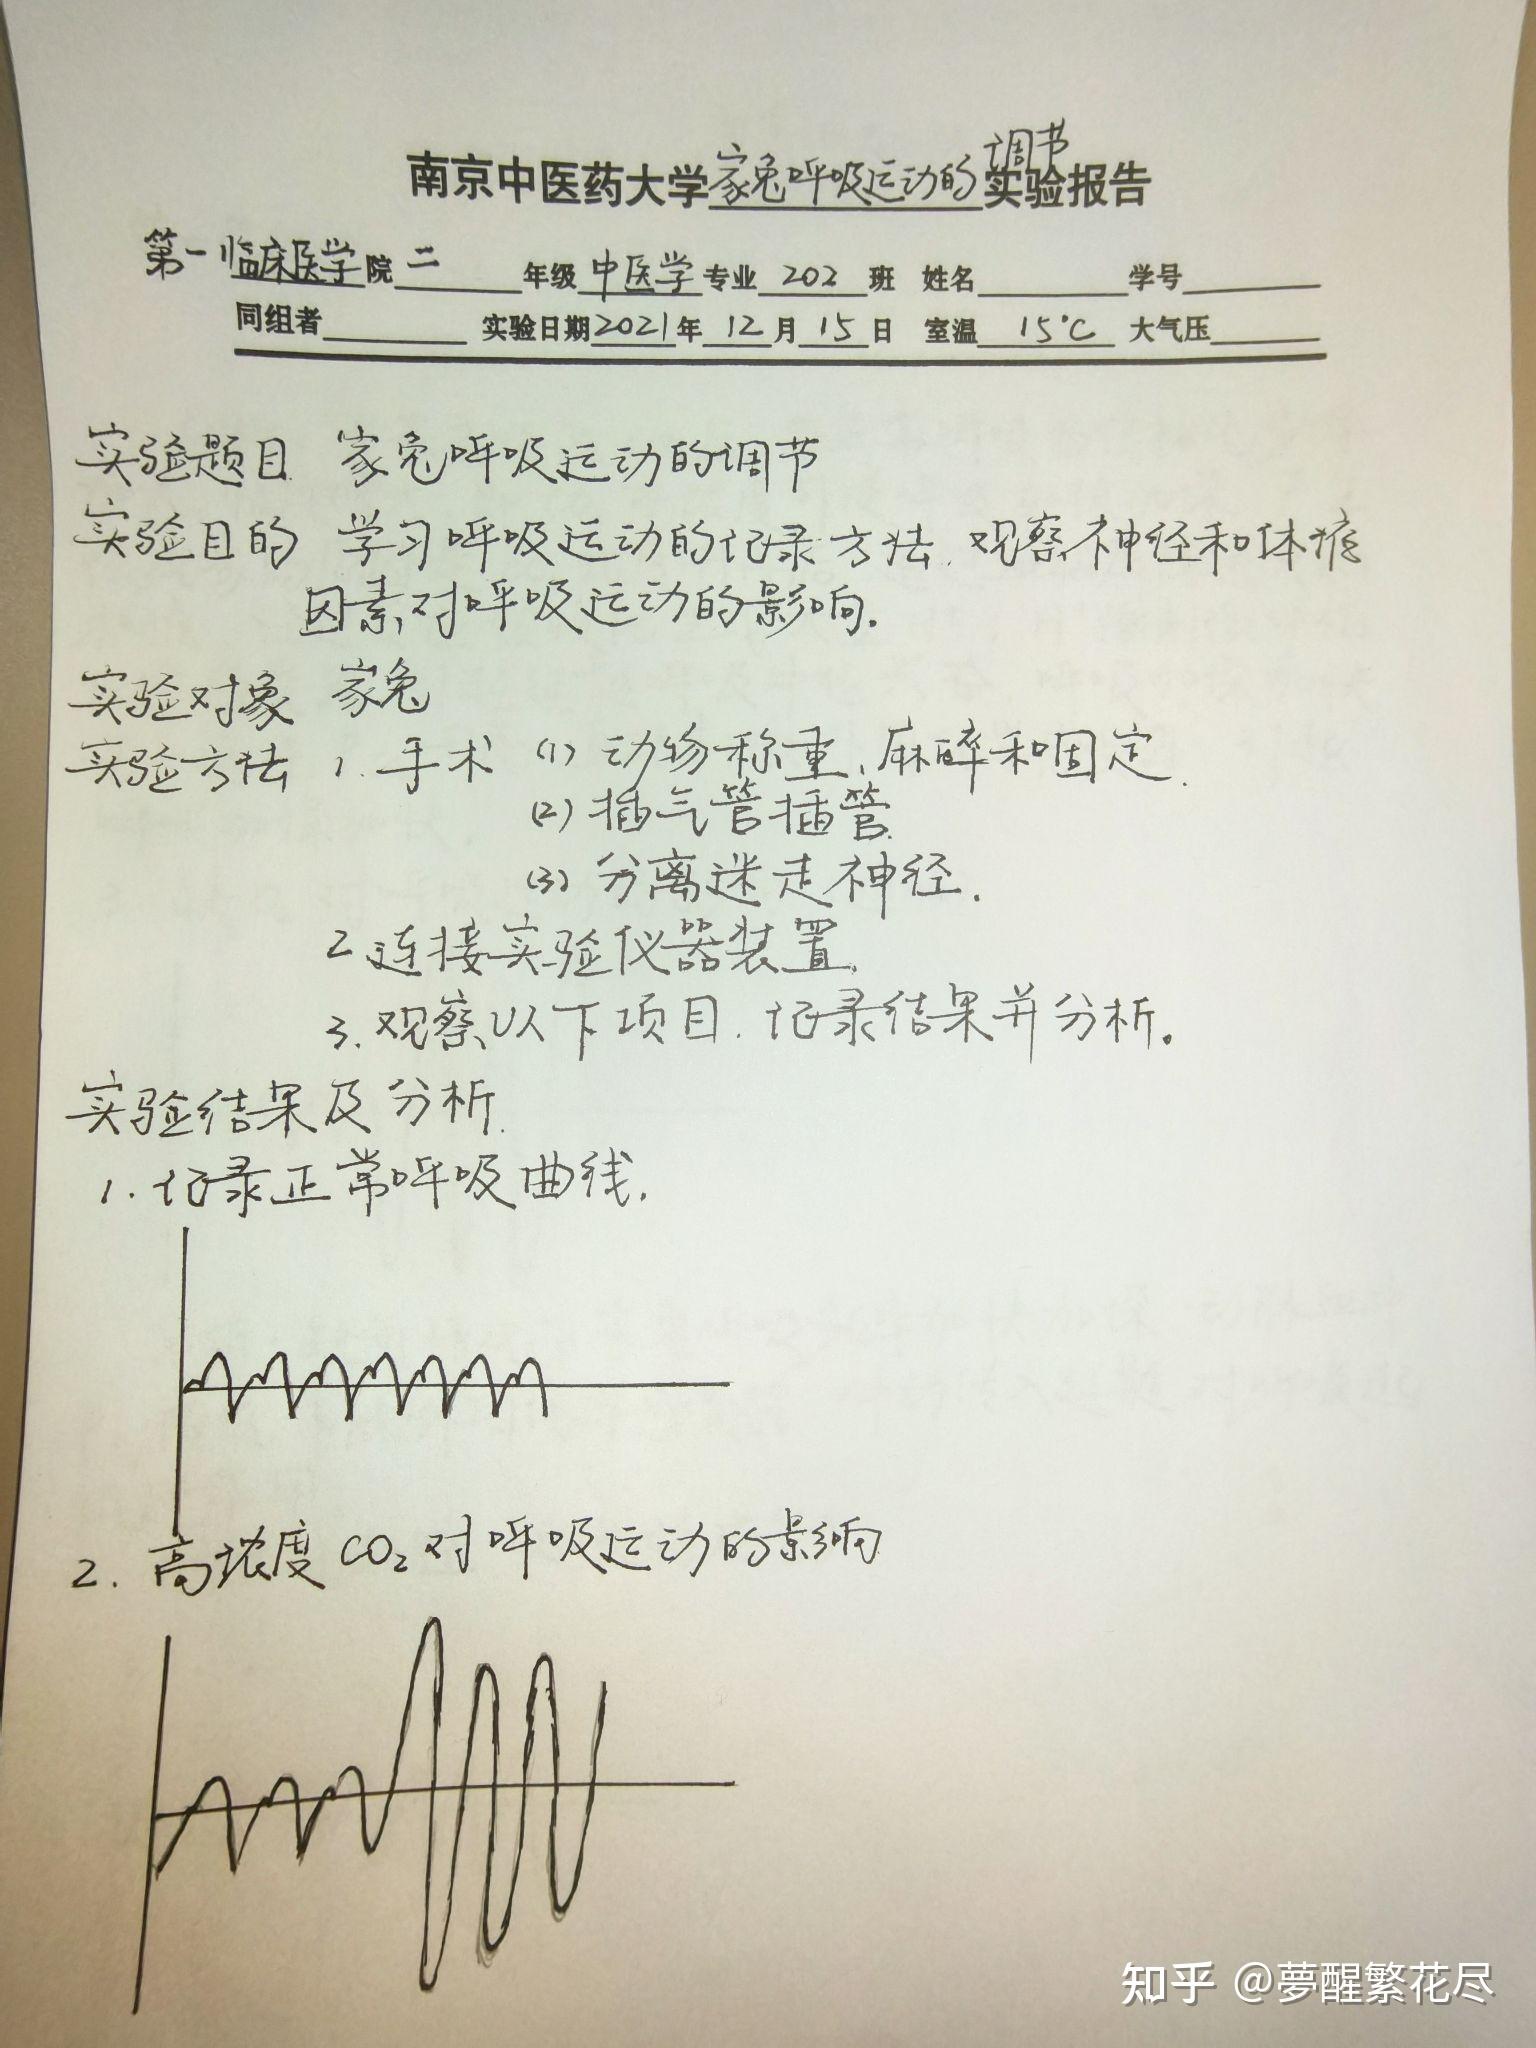 南京中医药大学家兔呼吸运动的调节实验报告
第一临床医学院 二 年级 中医学 专业 202 班 姓名 学号
同组者 实验日期 2021 年 12 月 15 日 室温 15℃ 大气压
实验题目 家兔呼吸运动的调节
实验目的 学习呼吸运动的记录方法,观察神经和体液
因素对呼吸运动的影响.
实验对象 家兔
实验方法 1.手术 (1)动物称重、麻醉和固定.
(2)插气管插管.
(3)分离迷走神经.
2.连接实验仪器装置.
3.观察以下项目.记录结果并分析。
实验结果及分析.
1.记录正常呼吸曲线.
2.高浓度CO₂对呼吸运动的影响
知乎 @夢醒繁花尽